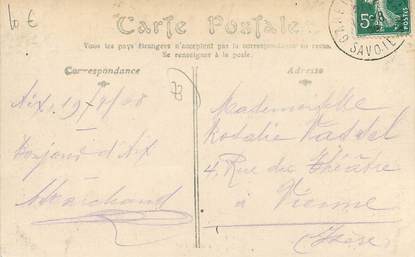 10 €
Carte Postale
Tous les pays étrangers n'acceptent pas la correspondance au recto.
Se renseigner à la poste.
Correspondance
Adresse
SAVOIE
5c
Aix, 08
Bonjour d'Aix
AMarchand
Mademoiselle
Rosalie Vassel
4, Rue du Théâtre
à Vienne
(Isère)